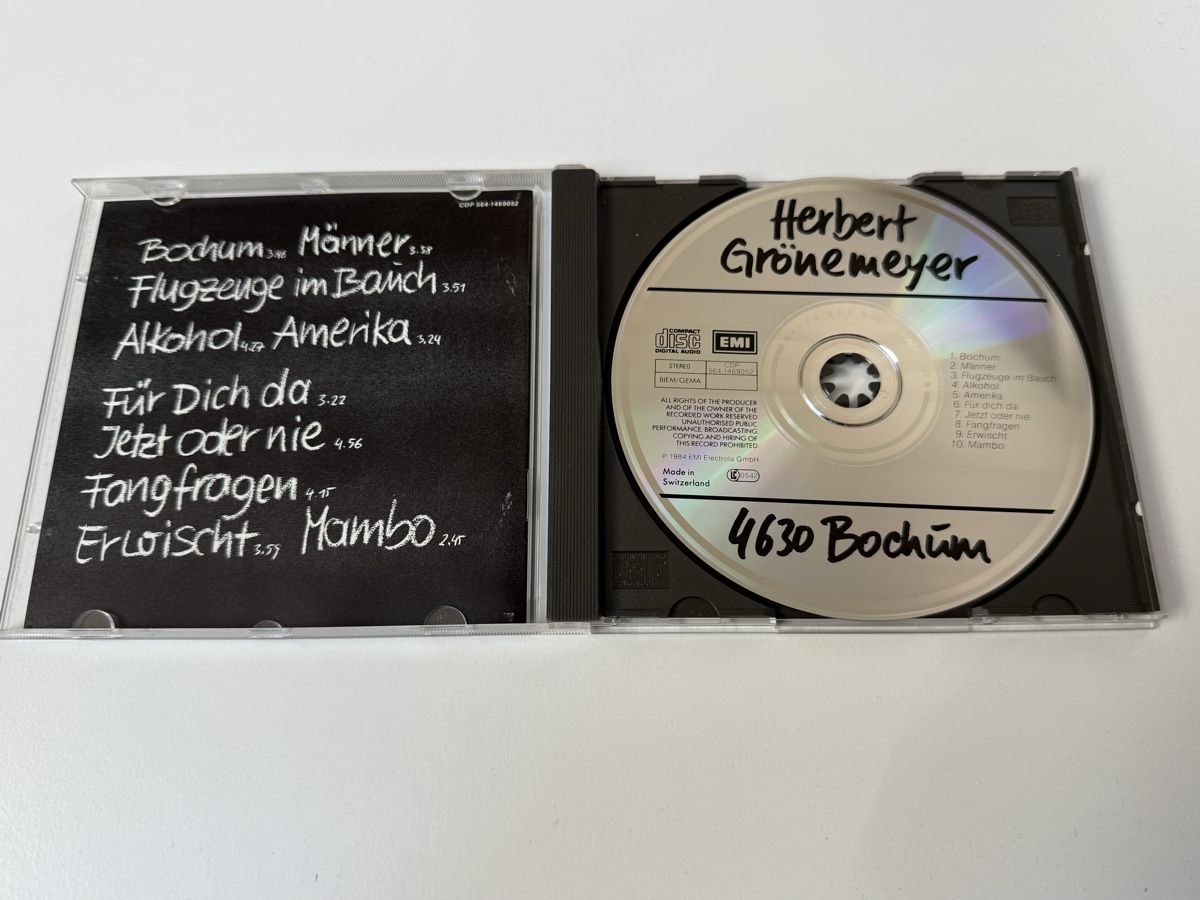 CDP 564-1469052
Bochum 3.46 Männer 3.38
Flugzeuge im Bauch 3.51
Alkohol 4.27 Amerika 3.24
Für Dich da 3.22
Jetzt oder nie 4.56
Fangfragen 4.15
Erwischt 3.59 Mambo 2.45
Herbert
Grönemeyer
COMPACT
disc
DIGITAL AUDIO
EMI
STEREO
CDP
564-1469052
BIEM/GEMA
ALL RIGHTS OF THE PRODUCER
AND OF THE OWNER OF THE
RECORDED WORK RESERVED
UNAUTHORISED PUBLIC
PERFORMANCE, BROADCASTING,
COPYING AND HIRING OF
THIS RECORD PROHIBITED
℗ 1984 EMI Electrola GmbH
Made in
Switzerland
LC 0542
1. Bochum
2. Männer
3. Flugzeuge im Bauch
4. Alkohol
5. Amerika
6. Für dich da
7. Jetzt oder nie
8. Fangfragen
9. Erwischt
10. Mambo
4630 Bochum